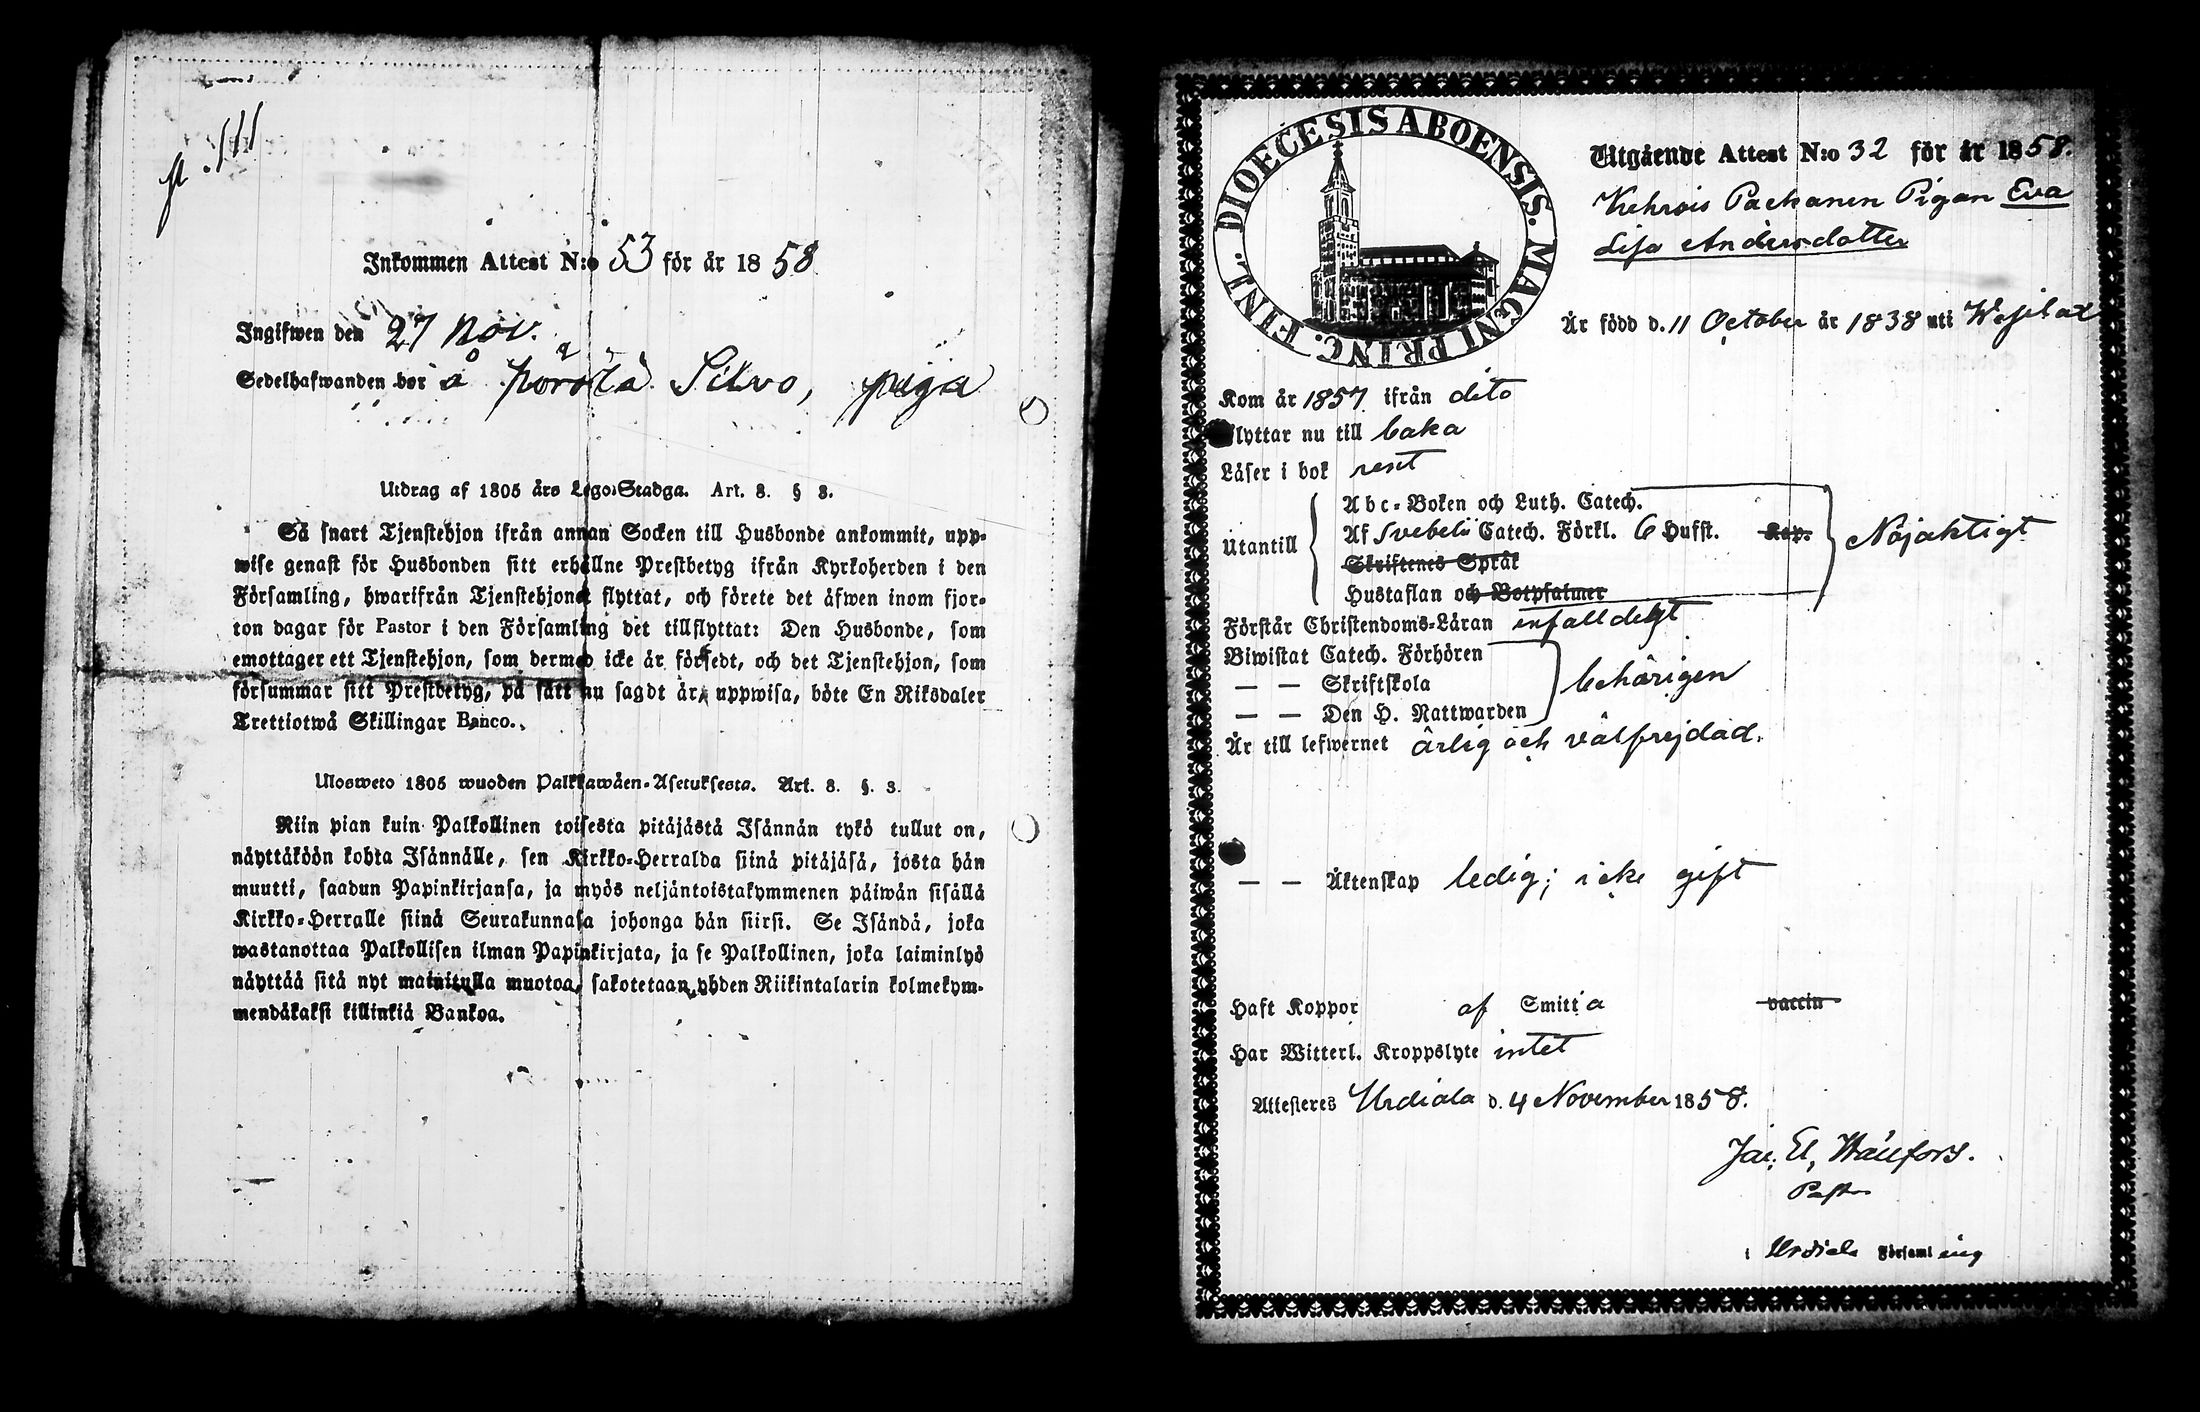 p. 111
Inkommen Attest N:o 53 för år 1858
Ingifwen den 27 Nov.
Sedelhafwanden bor å Pörölä Silvo, piga
Utdrag af 1805 års Lego-Stadga. Art. 8. § 3.
Så snart Tjenstehjon ifrån annan Socken till Husbonde ankommit, upp-
wise genast för Husbonden sitt erhållne Prestbetyg ifrån Kyrkoherden i den
Församling, hwarifrån Tjenstehjonet flyttat, och förete det äfwen inom fjor-
ton dagar för Pastor i den Församling det tillflyttat: Den Husbonde, som
emottager ett Tjenstehjon, som dermed icke är försedt, och det Tjenstehjon, som
försummar sitt Prestbetyg, på sätt nu sagdt är, uppwisa, böte En Riksdaler
Trettiotwå Skillingar Banco.
Ulosweto 1805 wuoden Palkkawäen-Asetuksesta. Art. 8. §. 3.
Niin pian kuin Palkollinen toisesta pitäjästä Isännän tykö tullut on,
näyttäköön kohta Isännälle, sen Kirkko-Herralda siinä pitäjäsä, josta hän
muutti, saadun Papinkirjansa, ja myös neljäntoistakymmenen päiwän sisällä
Kirkko-Herralle siinä Seurakunnasa johonga hän siirsi. Se Isändä, joka
wastanottaa Palkollisen ilman Papinkirjata, ja se Palkollinen, joka laiminlyö
näyttää sitä nyt mainitulla muotoa, sakotetaan yhden Riikintalarin kolmekym-
mendäkaksi killinkiä Bankoa.
DIOECESIS ABOENSIS. MAGNI PRINC. FINL.
Utgående Attest N:o 32 för år 1858.
Kehrois Packanen Pigan Eva
Lisa Andersdotter
Är född d. 11 October år 1838 uti Wesilax
Kom år 1857 ifrån dito
Flyttar nu till baka
Läser i bok rent
Utantill
Abc-Boken och Luth. Catech.
Af Svebelii Catech. Förkl. 6 Hufst. Kap.
Skriftenes Språk
Hustaflan och Botpsalmer
Nöjaktigt
Förstår Christendoms-Läran enfalldigt
Biwistat Catech. Förhören
— — Skriftskola
— — Den H. Nattwarden
behörigen
Är till lefwernet ärlig och välfrejdad.
— — Äktenskap ledig; icke gift
Haft Koppor af Smitta vaccin
Har Witterl. Kroppslyte intet
Attesteres Urdiala d. 4 November 1858.
Jac. El. Wänfors.
Pastor
i Urdiala Församling